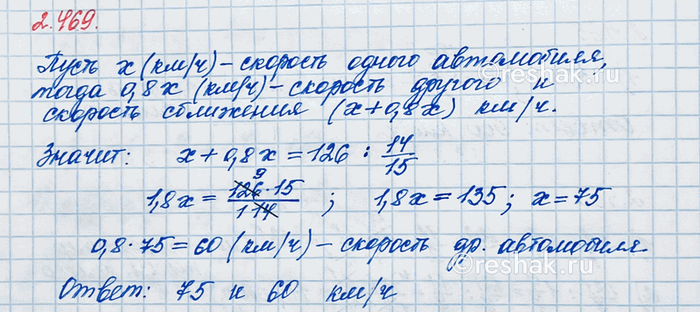 2.469.
Пусть x (км/ч) – скорость одного автомобиля,
тогда 0,8x (км/ч) – скорость другого и
скорость сближения (x+0,8x) км/ч.
Значит: x + 0,8x = 126 : 14/15
1,8x = 126 9 · 15 / 1 14 ; 1,8x = 135; x = 75
0,8 · 75 = 60 (км/ч) – скорость др. автомобиля
Ответ: 75 и 60 км/ч
reshak.ru
reshak.ru